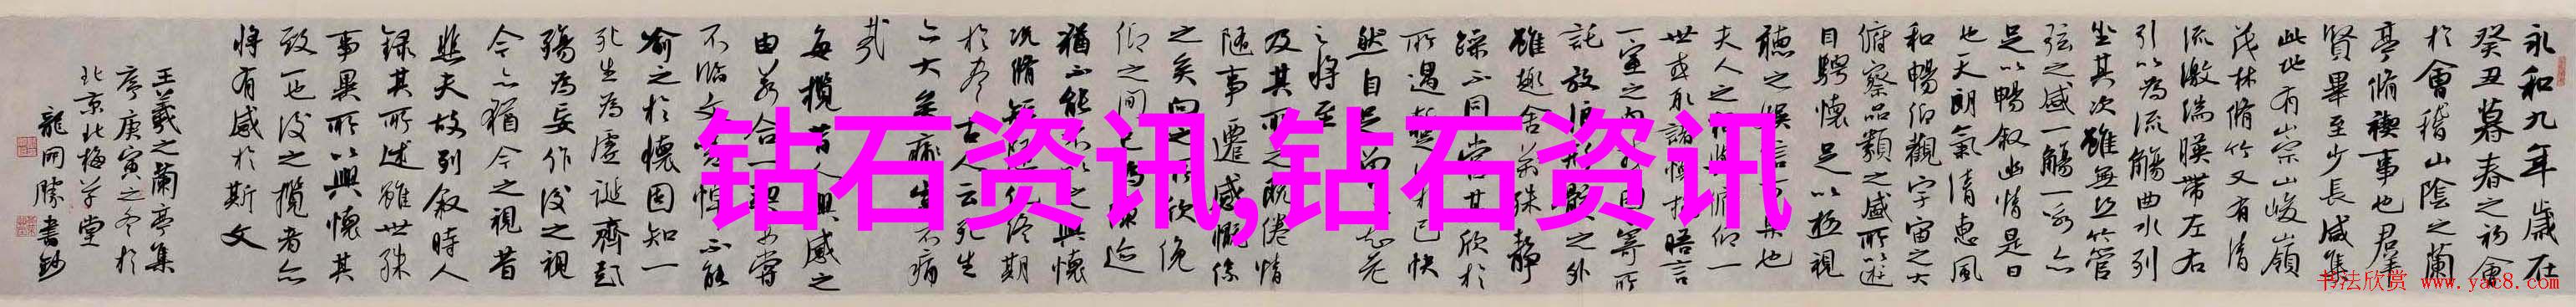 永和九年歲在
癸丑暮春之初會
於會稽山陰之蘭
亭脩禊事也群
賢畢至少長咸集
此地有崇山峻嶺
茂林脩竹又有清
流激湍暎帶左右
引以為流觴曲水列
坐其次雖無絲竹管
弦之盛一觴一詠亦
足以暢敘幽情是日
也天朗氣清惠風
和暢仰觀宇宙之大
俯察品類之盛所以遊
目騁懷足以極視
聽之娛信可樂也
夫人之相與俯仰一
世或取諸懷抱晤言
一室之內 因寄所
託放浪形骸之外
雖趣舍萬殊靜
躁不同當其欣於
所遇暫得 己快
然自足 老
之將至
及其所之既倦情
隨事遷感慨係
之矣向之所欣俛
仰之間已為陳迹
猶不能不以之興懷
況脩短隨化終期
於盡古人云死生
亦大矣 不痛
哉
每攬昔人興感之
由若合一契未嘗
不臨文嗟悼不能
喻之於懷固知一
死生為虛誕齊彭
殤為妄作後之視
今亦猶今之視昔
悲夫故列敘時人
錄其所述雖世殊
事異所以興懷其
致一也後之攬者亦
將有感於斯文
王羲之蘭亭集
序庚寅之冬於
北京北梅草堂
龍開勝書鈔
钻石资讯,钻石资讯
书法欣赏 www.yac8.com